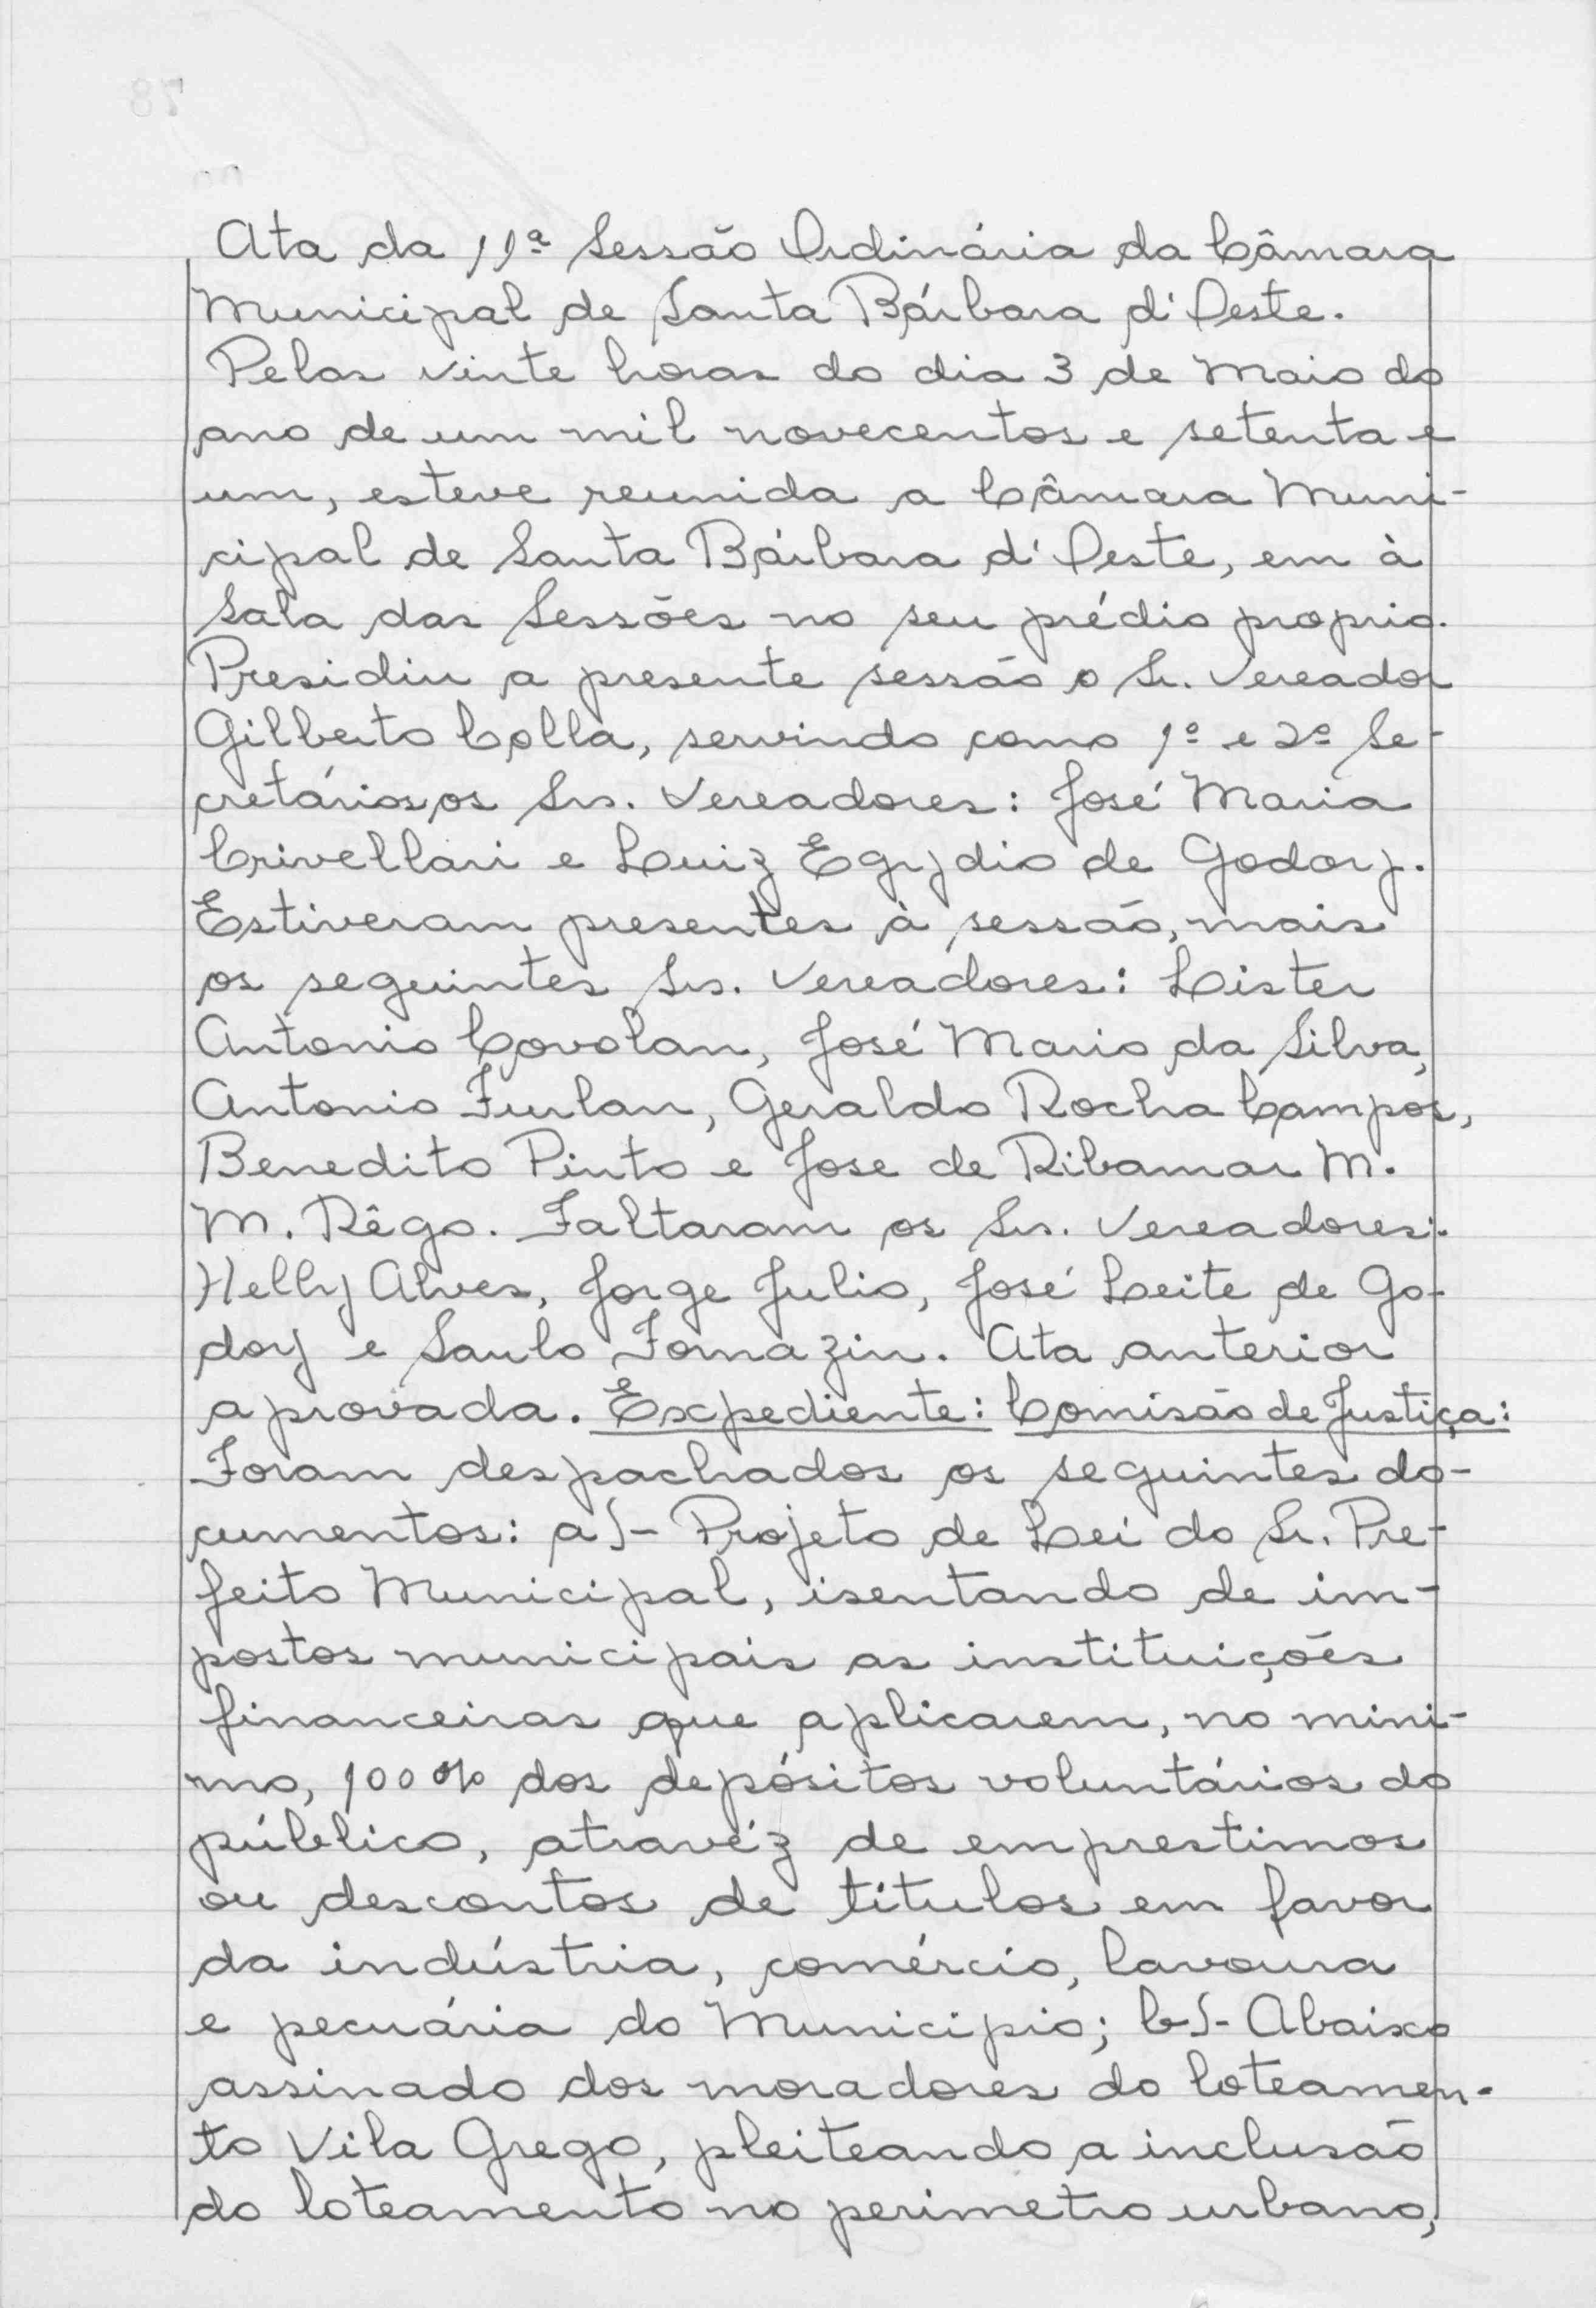 Ata da 11ª Sessão Ordinária da Câmara
Municipal de Santa Bárbara d'Oeste.
Pelas vinte horas do dia 3 de Maio do
ano de um mil novecentos e setenta e
um, esteve reunida a Câmara Muni-
cipal de Santa Bárbara d'Oeste, em à
Sala das Sessões no seu prédio proprio.
Presidiu a presente sessão o Sr. Vereador
Gilberto Colla, servindo como 1º e 2º Se-
cretários, os Srs. Vereadores: José Maria
Crivellari e Luiz Egydio de Godoy.
Estiveram presentes à sessão, mais
os seguintes Srs. Vereadores: Lister
Antonio Covolan, José Mario da Silva,
Antonio Furlan, Geraldo Rocha Campos,
Benedito Pinto e Jose de Ribamar M.
M. Rêgo. Faltaram os Srs. Vereadores:
Helly Alves, Jorge Julio, José Leite de Go-
doy e Saulo Fornazin. Ata anterior
aprovada. Expediente: Comisão de Justiça:
Foram despachados os seguintes do-
cumentos: a)- Projeto de Lei do Sr. Pre-
feito Municipal, isentando de im-
postos municipais as instituições
financeiras que aplicarem, no mini-
mo, 100% dos depósitos voluntários do
público, atravéz de emprestimos
ou descontos de títulos em favor
da indústria, comércio, lavoura
e pecuária do Municipio; b)- Abaixo
assinado dos moradores do loteamen-
to Vila Grego, pleiteando a inclusão
do loteamento no perimetro urbano,